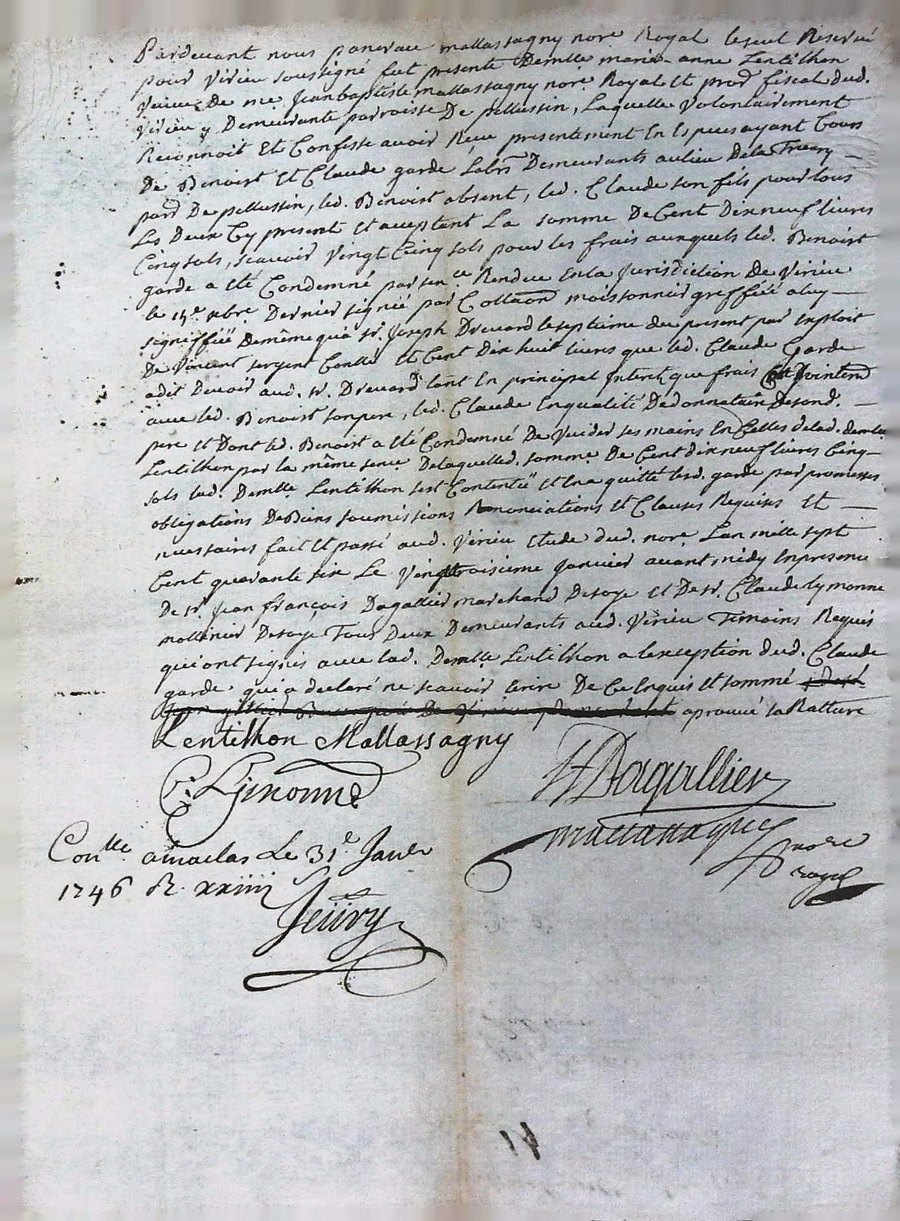 Pardevant nous pancrace mallassagny nore Royal le seul Reservé
pour Virieu soussigné fut presente Demlle marie anne Lentilhon
veuve De me Jean baptiste mallassagny nore Royal et procr fiscal dud.
Virieu y Demeurante parroisse De pellussin, Laquelle volontairement
Reconnoit Et Confesse avoir Receu presentement En Especes ayant Cours
De Benoist Et Claude garde Labrs Demeurants au lieu De la
parr De pellussin, led. Benoist absent, led. Claude son fils pour tous
Les Deux Cy present Et acceptant La somme De Cent Dix neuf livres
Cinq sols, scavoir vingt Cinq sols pour les frais auxquels led. Benoist
garde a Eté Condamné par sence Rendue En la Jurisdiction De Virieu
le 15e xbre Dernier signée par Collaon moissonnier greffié a luy
signiffiée De même qu'a sr. Joseph Drevard le septieme du present par Exploit
De Vincent sergent Contlé Et Cent Dix huit livres que led. Claude Garde
a dit Devoir aud. sr. Drevard tant En principal Interet que frais
avec led. Benoist son pere, led. Claude En qualité De donnataire De sond.
pere Et Dont led. Benoist a Eté Condamné De Vuider ses mains En Celles de lad. demlle
Lentilhon par la même sence De laquelle d. somme De Cent dix neuf livres Cinq
sols lad. Demlle Lentilhon s'est Contentée Et En a quitté lesd. garde par promesses
obligations De Biens soumissions Renonciations Et Clauses Requises Et
necessaires fait Et passé aud. Virieu Etude dud. nore. L'an mille sept
Cent quarante six Le Vingt troisieme Janvier avant midy En presence
De sr. Jean françois Dagallier marchand De soye Et De sr. Claude Lymonne
moulinier De soye Tous Deux Demeurants aud. Virieu Temoins Requis
qui ont signés avec lad. Demlle Lentilhon a l'exception dud. Claude
garde qui a declaré ne scavoir Ecrire De Ce Enquis Et sommé
aprouvé la Ratture
Lentilhon Mallassagny
C. Limonne
Jf Dagallier
Mallassagny nore
royal
Conlle a maclas Le 31e Janvr
1746 R. xxiiii s
Jeüvry